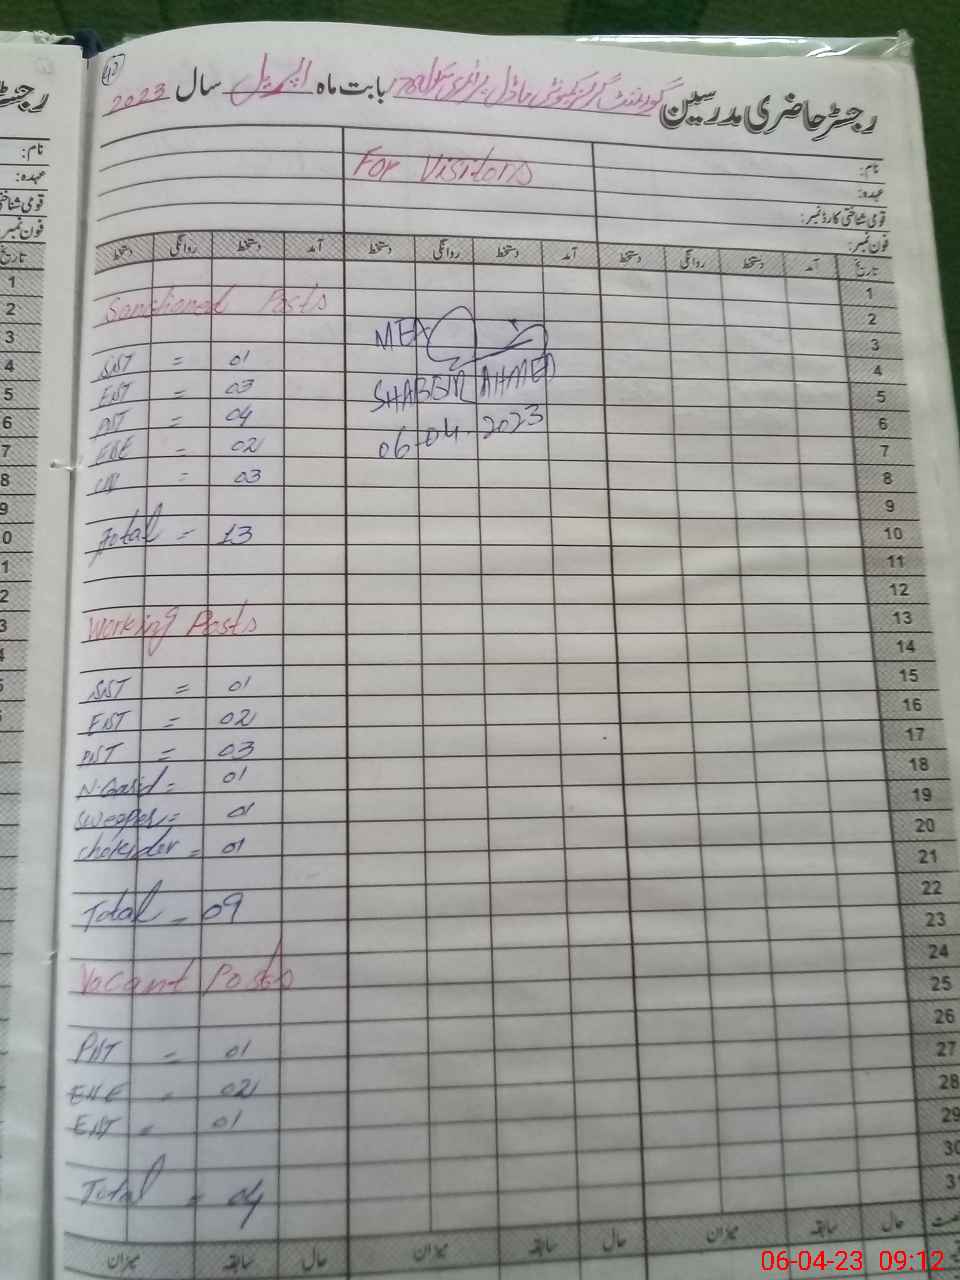 رجسٹر حاضری مدرسین گورنمنٹ گرلز کمیونٹی ماڈل پرائمری سکول بابت ماہ اپریل سال 2023
نام:
عہدہ:
قومی شناختی کارڈ نمبر:
فون نمبر:
For Visitors
تاریخ آمد دستخط روانگی دستخط آمد دستخط روانگی دستخط آمد دستخط روانگی دستخط
1
2
3
4
5
6
7
8
9
10
11
12
13
14
15
16
17
18
19
20
21
22
23
24
25
26
27
28
29
30
31
Sanctioned Posts
SST = 01
EST = 03
PST = 04
ESE = 02
= 03
Total = 13
MEA
SHABEER AHMED
06-04-2023
Working Posts
SST = 01
EST = 02
PST = 03
N.Qasid = 01
Sweeper = 01
chokidar = 01
Total = 09
Vacant Posts
PST = 01
ESE = 02
EST = 01
Total = 04
حال سابقہ میزان حال سابقہ میزان حال سابقہ میزان
06-04-23 09:12